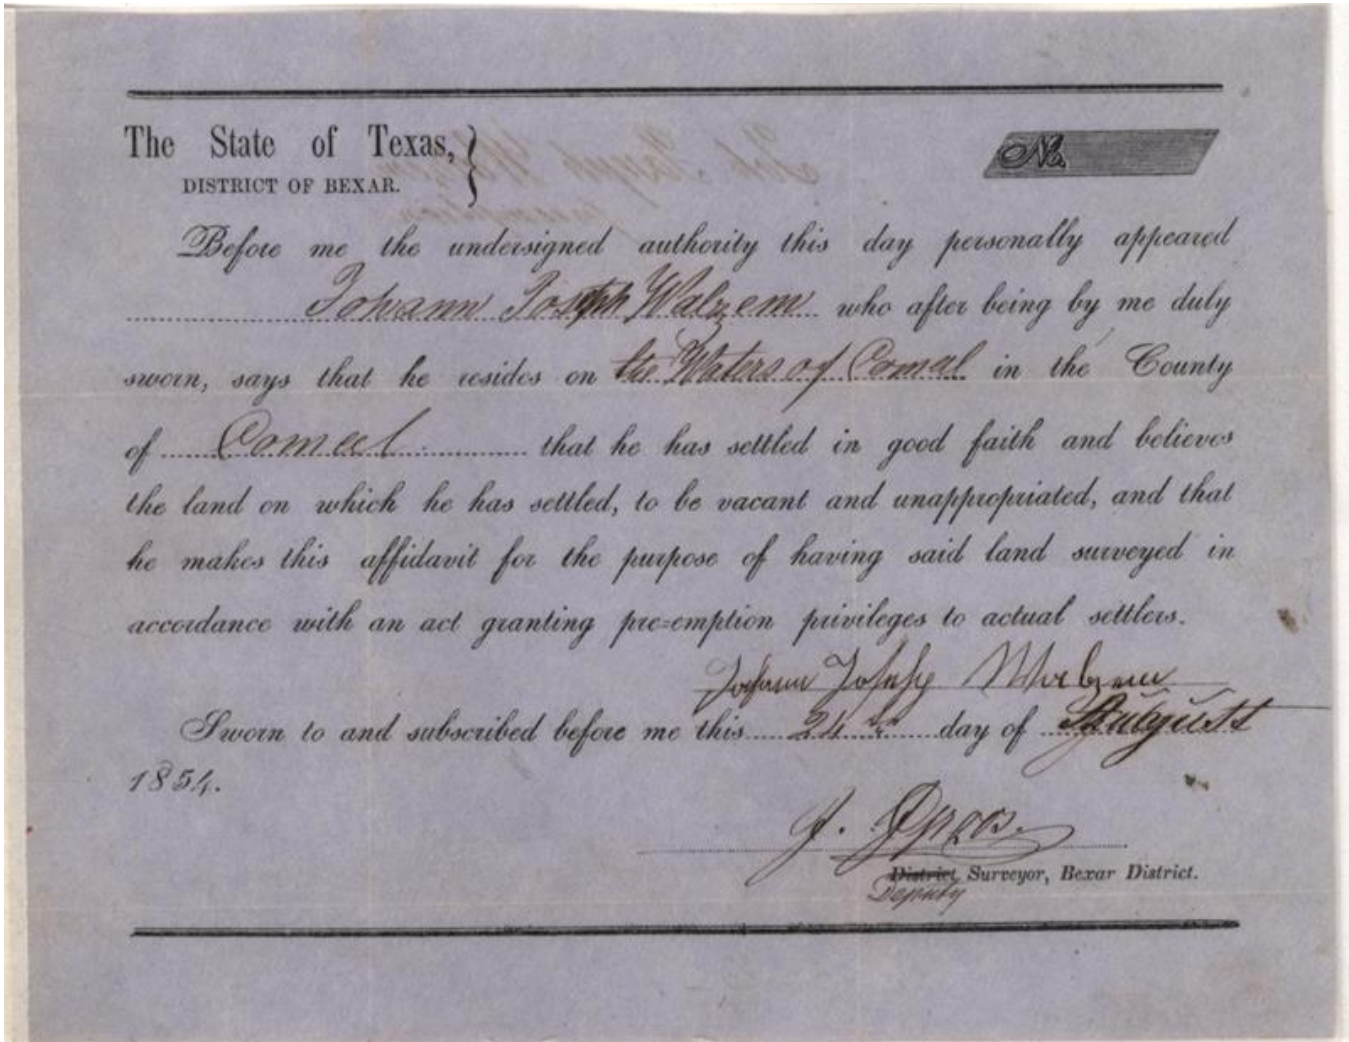 The State of Texas, }
DISTRICT OF BEXAR.
No.
Before me the undersigned authority this day personally appeared
Johann Joseph Walzem who after being by me duly
sworn, says that he resides on the Waters of Comal in the County
of Comal that he has settled in good faith and believes
the land on which he has settled, to be vacant and unappropriated, and that
he makes this affidavit for the purpose of having said land surveyed in
accordance with an act granting pre=emption privileges to actual settlers.
Johann Joseph Walzem
Sworn to and subscribed before me this 24th day of August
1854.
J.
District Surveyor, Bexar District.
Deputy